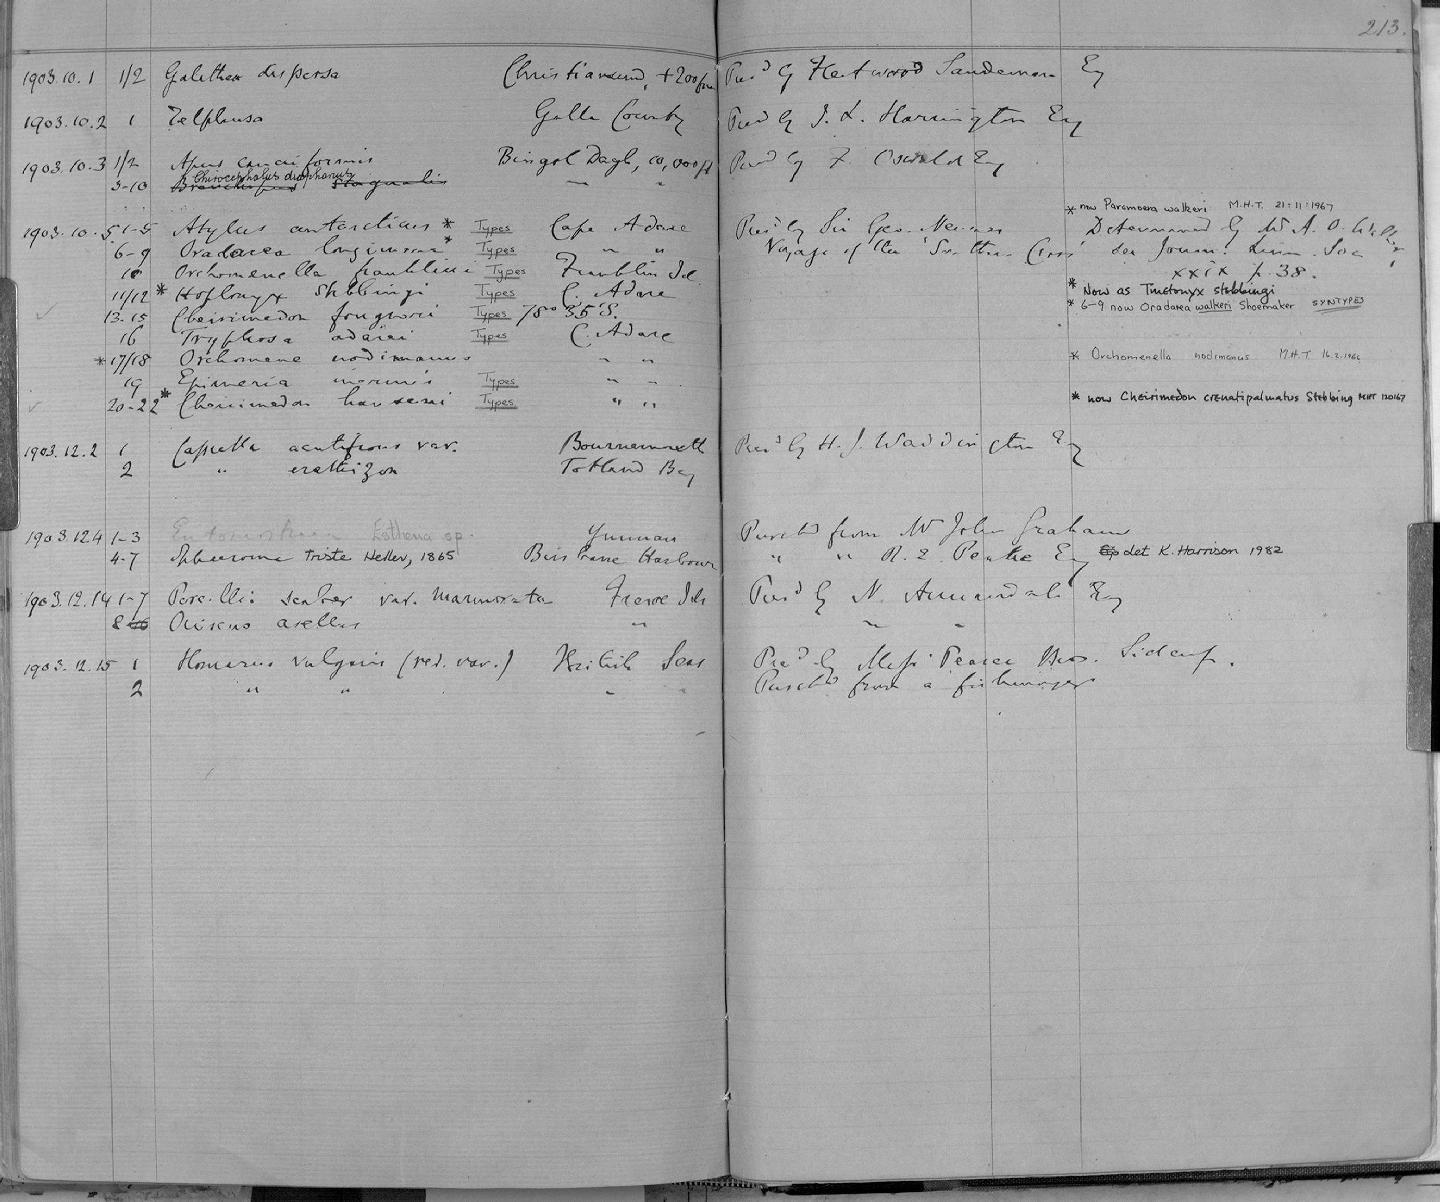 213.
1903.10.1 1/2 Galathea dispersa Christiansund, +200fm Pres'd by Fleetwood Sandeman Esq
1903.10.2 1 Telphusa Galla County Pres'd by J. L. Harrington Esq
1903.10.3 1/2 Apus cancriformis Bingol Dagh, 10,000ft Pres'd by F. Oswald Esq
Chirocephalus diaphanus
3-10 Branchipus stagnalis " "
* now Paramoera walkeri M.H.T. 21:11:1967
1903.10.5 1-5 Atylus antarcticus * Types Cape Adare Pres'd by Sir Geo. Newnes Determined by Mr A. O. Walker
6-9 Oradarea longimana * Types " " Voyage of the 'Southern Cross' see Journ. Linn. Soc
10 Orchomenella franklini Types Franklin Id. xxix p. 38.
11/12 * Hoplonyx stebbingi Types C. Adare * Now as Tmetonyx stebbingi
13-15 Cheirimedon fougneri Types 78° 35' S. * 6-9 now Oradarea walkeri Shoemaker SYNTYPES
16 Tryphosa adarei Types C. Adare
* 17/18 Orchomene nodimanus " " * Orchomenella nodimanus M.H.T. 16.2.1966
19 Epimeria inermis Types " "
20-22 * Cheirimedon hanseni Types " " * now Cheirimedon crenatipalmatus Stebbing MHT
1903.12.2 1 Caprella acutifrons var. Bournemouth Pres'd by H. J. Waddington Esq
2 " erethizon Totland Bay
1903.12.4 1-3 Entomostraca Estheria sp. Yunnan Purch'd from Mr John Graham
4-7 Sphaeroma triste Heller, 1865 Brisbane Harbour " " R. E. Esq det K. Harrison 1982
1903.12.14 1-7 Porcellio scaber var. marmorata Faeroe Ids Pres'd by N. Annandale Esq
8 Oniscus asellus " " "
1903.12.15 1 Homarus vulgaris (red. var.) British Seas Pres'd by Mess. Pearce Bros. Sidcup.
2 " " " " Purch'd from a fishmonger